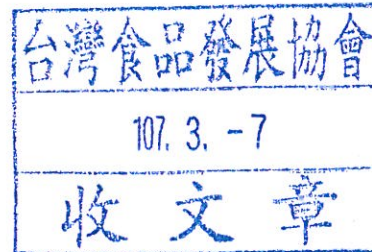 台灣食品發展協會
107. 3. -7
收文章